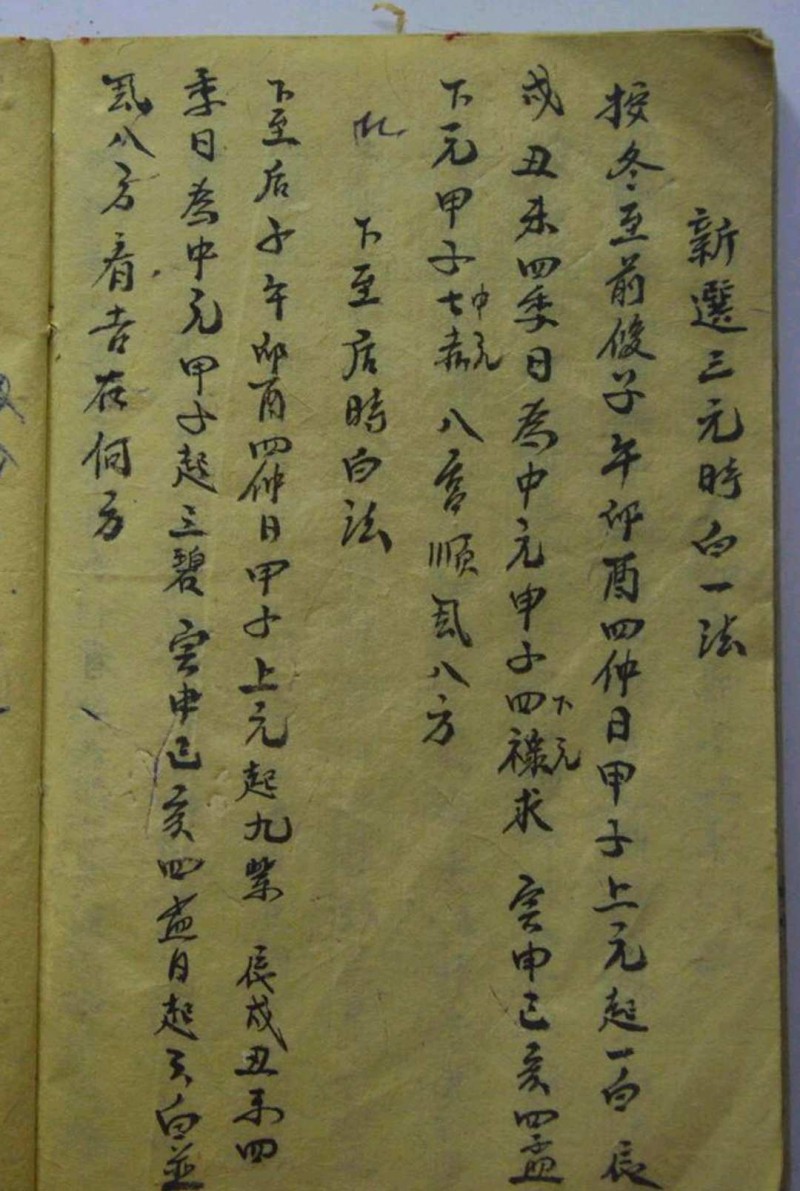 新選三元時白一法
按冬至前後子午卯酉四仲日甲子上元起一白辰
戌丑未四季日為中元甲子四禄下元求 寅申巳亥四孟
下元甲子七赤中元 八宮順飛八方
此 下至后時白法
下至后子午卯酉四仲日甲子上元起九紫 辰戌丑未四
季日為中元甲子起三碧 寅申巳亥四孟日起六白並
飛八方看吉在何方